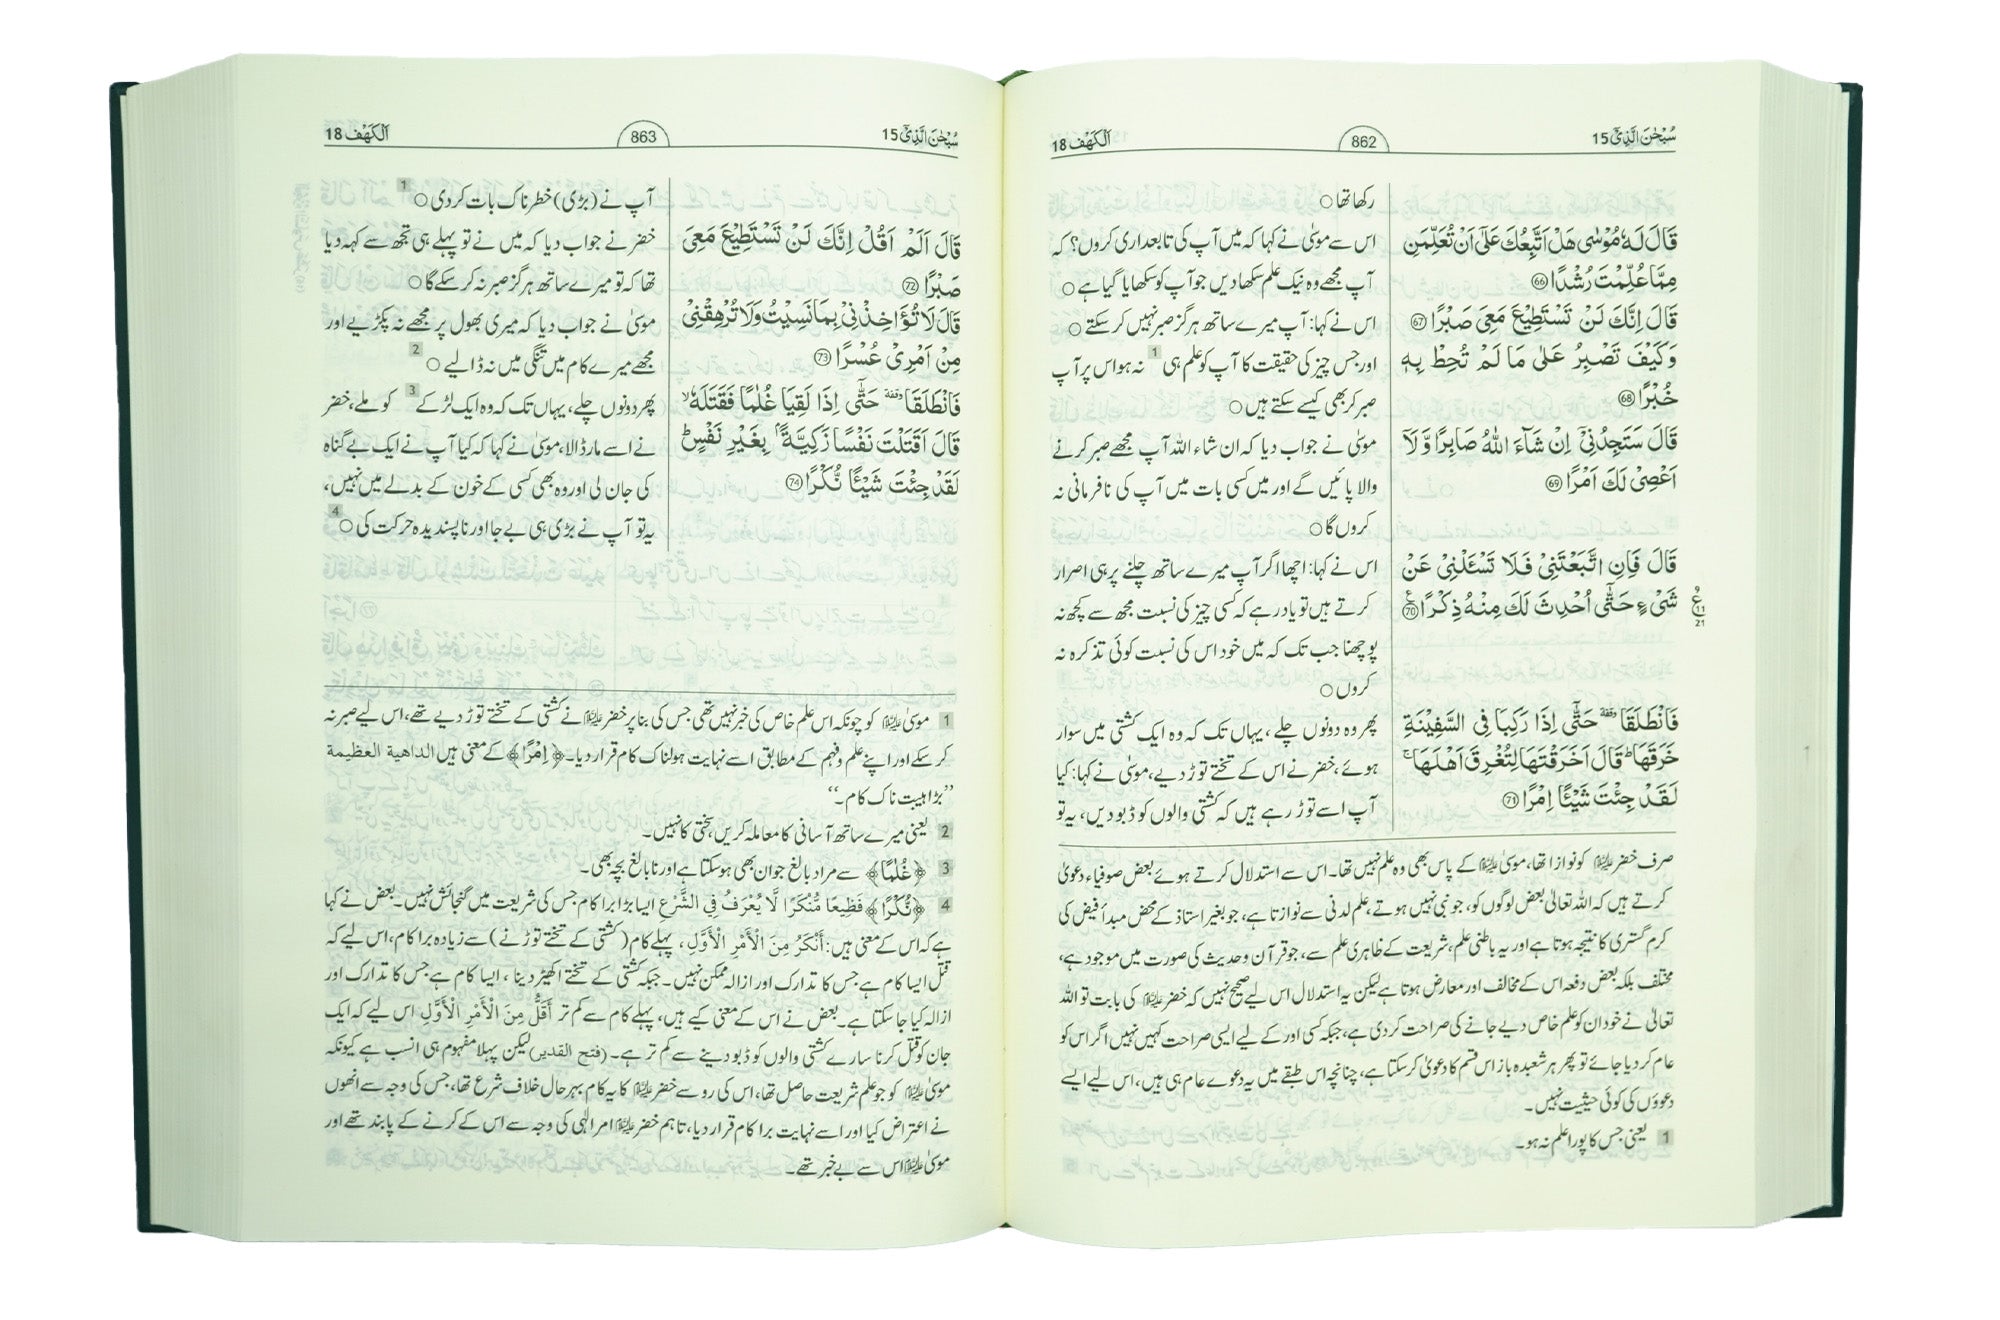 سُبْحٰنَ الَّذِيْٓ 15
862
اَلْكَهْف 18
قَالَ لَهٗ مُوْسٰى هَلْ اَتَّبِعُكَ عَلٰٓى اَنْ تُعَلِّمَنِ
مِمَّا عُلِّمْتَ رُشْدًا 66
قَالَ اِنَّكَ لَنْ تَسْتَطِيْعَ مَعِيَ صَبْرًا 67
وَكَيْفَ تَصْبِرُ عَلٰى مَا لَمْ تُحِطْ بِهٖ
خُبْرًا 68
قَالَ سَتَجِدُنِيْٓ اِنْ شَآءَ اللّٰهُ صَابِرًا وَّلَآ
اَعْصِيْ لَكَ اَمْرًا 69
قَالَ فَاِنِ اتَّبَعْتَنِيْ فَلَا تَسْـَٔلْنِيْ عَنْ
شَيْءٍ حَتّٰٓى اُحْدِثَ لَكَ مِنْهُ ذِكْرًا 70
ع
11
21
فَانْطَلَقَا ۥوقفة حَتّٰٓى اِذَا رَكِبَا فِي السَّفِيْنَةِ
خَرَقَهَا ؕ قَالَ اَخَرَقْتَهَا لِتُغْرِقَ اَهْلَهَا ۚ
لَقَدْ جِئْتَ شَيْـًٔا اِمْرًا 71
رکھا تھا ○
اس سے موسیٰ نے کہا کہ میں آپ کی تابعداری کروں؟ کہ
آپ مجھے وہ نیک علم سکھا دیں جو آپ کو سکھایا گیا ہے ○
اس نے کہا: آپ میرے ساتھ ہرگز صبر نہیں کر سکتے ○
اور جس چیز کی حقیقت کا آپ کو علم ہی 1 نہ ہو اس پر آپ
صبر کر بھی کیسے سکتے ہیں ○
موسیٰ نے جواب دیا کہ ان شاء اللہ آپ مجھے صبر کرنے
والا پائیں گے اور میں کسی بات میں آپ کی نافرمانی نہ
کروں گا ○
اس نے کہا: اچھا اگر آپ میرے ساتھ چلنے پر ہی اصرار
کرتے ہیں تو یاد رہے کہ کسی چیز کی نسبت مجھ سے کچھ نہ
پوچھنا جب تک کہ میں خود اس کی نسبت کوئی تذکرہ نہ
کروں ○
پھر وہ دونوں چلے، یہاں تک کہ وہ ایک کشتی میں سوار
ہوئے، خضر نے اس کے تختے توڑ دیے، موسیٰ نے کہا: کیا
آپ اسے توڑ رہے ہیں کہ کشتی والوں کو ڈبو دیں، یہ تو
صرف خضر علیہ السلام کو نوازا تھا، موسیٰ علیہ السلام کے پاس بھی وہ علم نہیں تھا۔ اس سے استدلال کرتے ہوئے بعض صوفیاء دعویٰ
کرتے ہیں کہ اللہ تعالیٰ بعض لوگوں کو، جو نبی نہیں ہوتے، علم لدنی سے نوازتا ہے، جو بغیر استاذ کے محض مبدأ فیض کی
کرم گستری کا نتیجہ ہوتا ہے اور یہ باطنی علم، شریعت کے ظاہری علم سے، جو قرآن و حدیث کی صورت میں موجود ہے،
مختلف بلکہ بعض دفعہ اس کے مخالف اور معارض ہوتا ہے لیکن یہ استدلال اس لیے صحیح نہیں کہ خضر علیہ السلام کی بابت تو اللہ
تعالیٰ نے خود ان کو علم خاص دیے جانے کی صراحت کر دی ہے، جبکہ کسی اور کے لیے ایسی صراحت کہیں نہیں اگر اس کو
عام کر دیا جائے تو پھر ہر شعبدہ باز اس قسم کا دعویٰ کر سکتا ہے، چنانچہ اس طبقے میں یہ دعوے عام ہی ہیں، اس لیے ایسے
دعووں کی کوئی حیثیت نہیں۔
1 یعنی جس کا پورا علم نہ ہو۔
سُبْحٰنَ الَّذِيْٓ 15
863
اَلْكَهْف 18
قَالَ اَلَمْ اَقُلْ اِنَّكَ لَنْ تَسْتَطِيْعَ مَعِيَ
صَبْرًا 72
قَالَ لَا تُؤَاخِذْنِيْ بِمَا نَسِيْتُ وَلَا تُرْهِقْنِيْ
مِنْ اَمْرِيْ عُسْرًا 73
فَانْطَلَقَا وقفة حَتّٰٓى اِذَا لَقِيَا غُلٰمًا فَقَتَلَهٗ ۙ
قَالَ اَقَتَلْتَ نَفْسًا زَكِيَّةًۢ بِغَيْرِ نَفْسٍ ؕ
لَقَدْ جِئْتَ شَيْـًٔا نُّكْرًا 74
آپ نے (بڑی) خطرناک بات کر دی ○ 1
خضر نے جواب دیا کہ میں نے تو پہلے ہی تجھ سے کہہ دیا
تھا کہ تو میرے ساتھ ہرگز صبر نہ کر سکے گا ○
موسیٰ نے جواب دیا کہ میری بھول پر مجھے نہ پکڑیے اور
مجھے میرے کام میں تنگی میں نہ ڈالیے ○ 2
پھر دونوں چلے، یہاں تک کہ وہ ایک لڑکے 3 کو ملے، خضر
نے اسے مار ڈالا، موسیٰ نے کہا کہ کیا آپ نے ایک بے گناہ
کی جان لی اور وہ بھی کسی کے خون کے بدلے میں نہیں،
یہ تو آپ نے بڑی ہی بے جا اور ناپسندیدہ حرکت کی ○ 4
1 موسیٰ علیہ السلام کو چونکہ اس علم خاص کی خبر نہیں تھی جس کی بنا پر خضر علیہ السلام نے کشتی کے تختے توڑ دیے تھے، اس لیے صبر نہ
کر سکے اور اپنے علم و فہم کے مطابق اسے نہایت ہولناک کام قرار دیا۔ ﴿اِمْرًا﴾ کے معنی ہیں الداهية العظيمة
’’بڑا ہیبت ناک کام۔‘‘
2 یعنی میرے ساتھ آسانی کا معاملہ کریں، سختی کا نہیں۔
3 ﴿غُلٰمًا﴾ سے مراد بالغ جوان بھی ہو سکتا ہے اور نابالغ بچہ بھی۔
4 ﴿نُّكْرًا﴾ فَظِيعًا مُّنْكَرًا لَّا يُعْرَفُ فِي الشَّرْعِ ایسا بڑا برا کام جس کی شریعت میں گنجائش نہیں۔ بعض نے کہا
ہے کہ اس کے معنی ہیں: أَنْكَرُ مِنَ الْأَمْرِ الْأَوَّلِ، پہلے کام (کشتی کے تختے توڑنے) سے زیادہ برا کام، اس لیے کہ
قتل ایسا کام ہے جس کا تدارک اور ازالہ ممکن نہیں۔ جبکہ کشتی کے تختے اکھیڑ دینا، ایسا کام ہے جس کا تدارک اور
ازالہ کیا جا سکتا ہے۔ بعض نے اس کے معنی کیے ہیں، پہلے کام سے کم تر أَقَلُّ مِنَ الْأَمْرِ الْأَوَّلِ اس لیے کہ ایک
جان کو قتل کرنا سارے کشتی والوں کو ڈبو دینے سے کم تر ہے۔ (فتح القدير) لیکن پہلا مفہوم ہی انسب ہے کیونکہ
موسیٰ علیہ السلام کو جو علم شریعت حاصل تھا، اس کی رو سے خضر علیہ السلام کا یہ کام بہرحال خلاف شرع تھا، جس کی وجہ سے انھوں
نے اعتراض کیا اور اسے نہایت برا کام قرار دیا، تاہم خضر علیہ السلام امر الٰہی کی وجہ سے اس کے کرنے کے پابند تھے اور
موسیٰ علیہ السلام اس سے بے خبر تھے۔